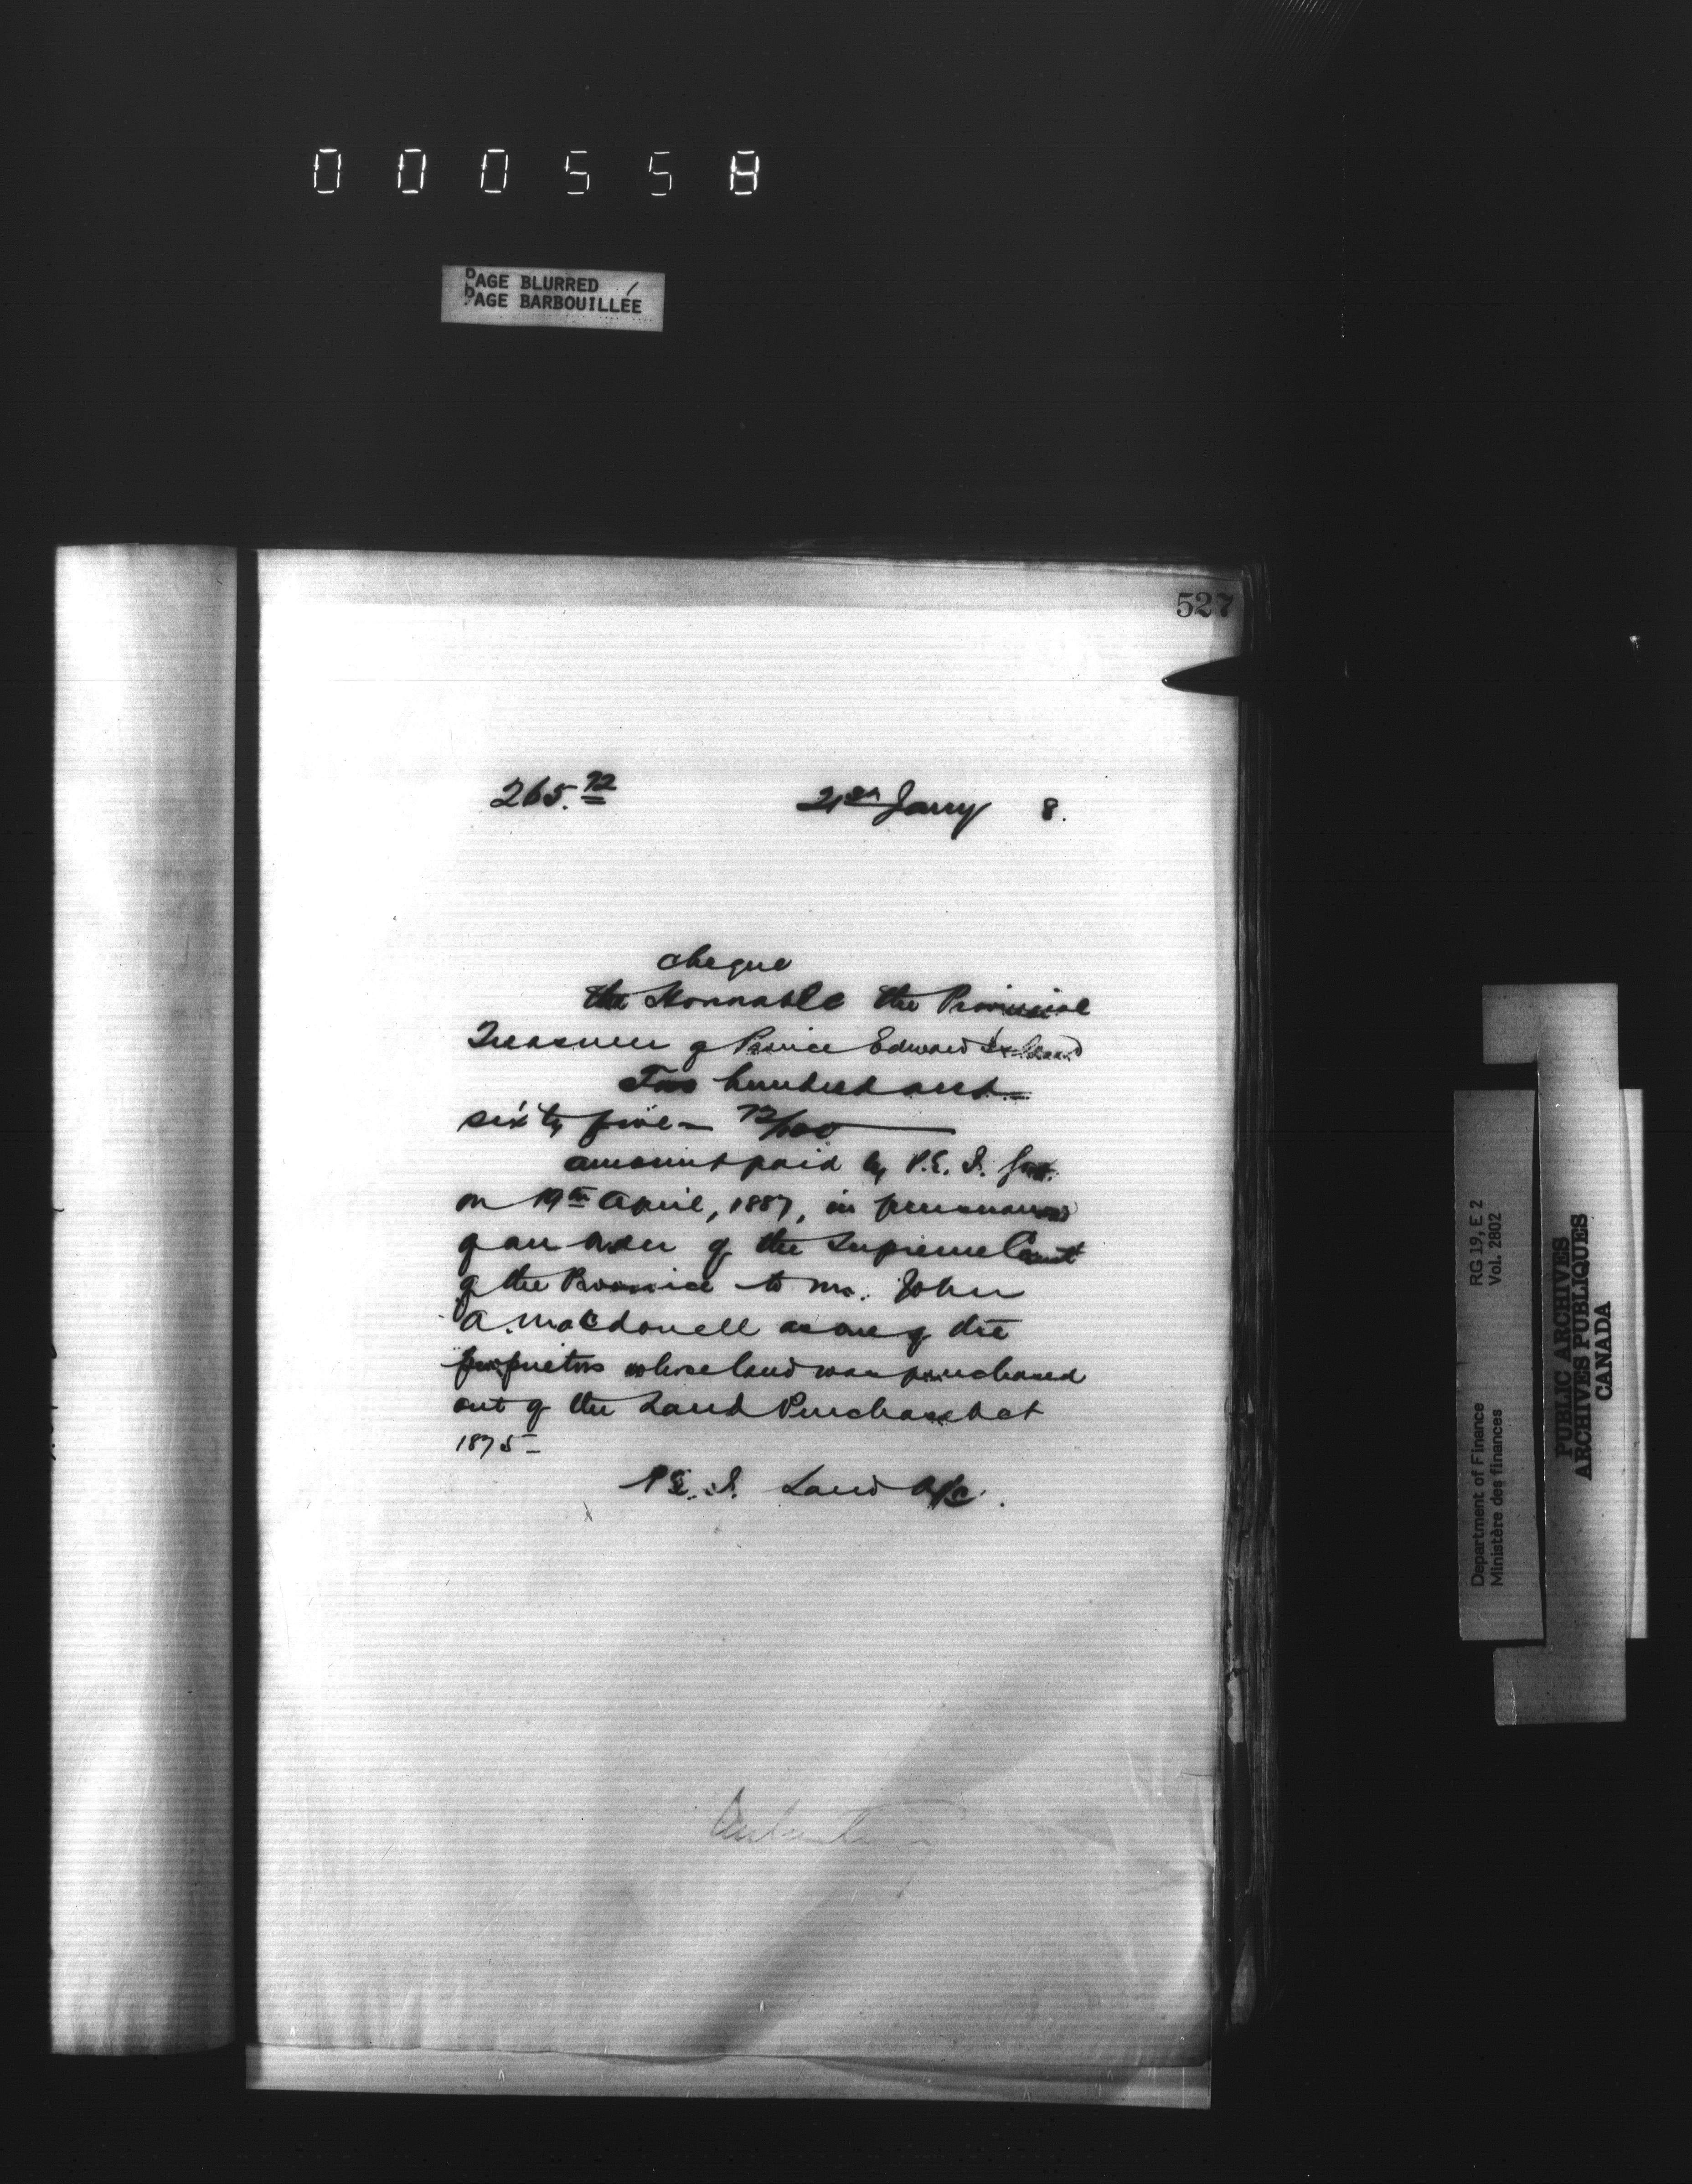 000558
PAGE BLURRED
PAGE BARBOUILLÉE
527
265.72 21st Jany 8.
cheque
the Honorable the Provincial
Treasurer of Prince Edward Island
Two hundred and
sixty five 72/100
amount paid by P.E.I. Govt.
on 19th April, 1887, in pursuance
of an order of the Supreme Court
of the Province to Mr. John
A. Macdonell as one of the
proprietors whose land was purchased
out of the Land Purchase Act
1875-
P.E.I. Land A/c.
Department of Finance RG 19, E 2
Ministère des finances Vol. 2802
PUBLIC ARCHIVES
ARCHIVES PUBLIQUES
CANADA